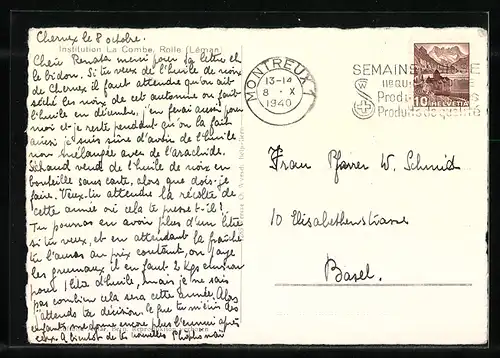 Chernex le 8 octobre.
Institution La Combe, Rolle (Léman)
Chère Renata merci pour ta lettre et
le bidon. Si tu veux de l'huile de noix
de Chernex il faut attendre qu'on ait
séché les noix de cet automne on fait
l'huile en décembre, j'en ferai aussi pour
moi et je reste pendant qu'on la fait
ainsi je suis sûre d'avoir de l'huile
non mélangée avec de l'arachide.
vend de l'huile de noix en
bouteille sans carte, alors que dois-je
faire. Veux-tu attendre la récolte de
cette année ou cela te presse t-il!
Tu pourras en avoir plus d'un litre
si tu veux, et en attendant la fraîche
tu l'auras au prix coûtant, on paye
les il en faut 2 Kgs environ
pour 1 litre d'huile, mais je ne sais
pas combien cela sera cette année. Alors
j'attends ta décision. Ce que tu m'écris des
enfants me donne encore plus l'ennui après
eux. A bientôt de tes nouvelles
MONTREUX 1
13-14
8 · X
1940
SEMAINE SUISSE
Produits de qualité
10 HELVETIA
Frau Pfarrer W. Schmid
10 Elisabethenstrasse
Basel.